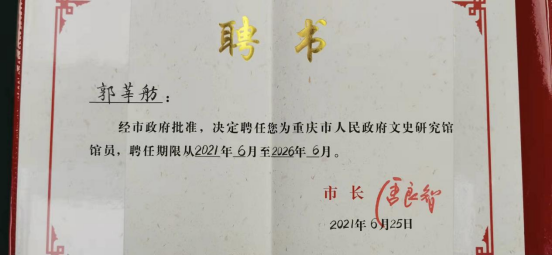 聘书
郭莘舫：
经市政府批准，决定聘任您为重庆市人民政府文史研究馆
馆员，聘任期限从2021年6月至2026年6月。
市长 唐良智
2021年6月25日